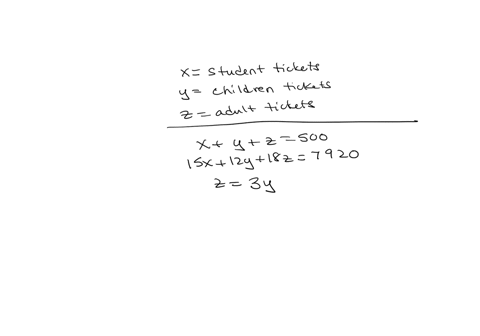 x = student tickets
y = children tickets
z = adult tickets
x + y + z = 500
15x + 12y + 18z = 7920
z = 3y